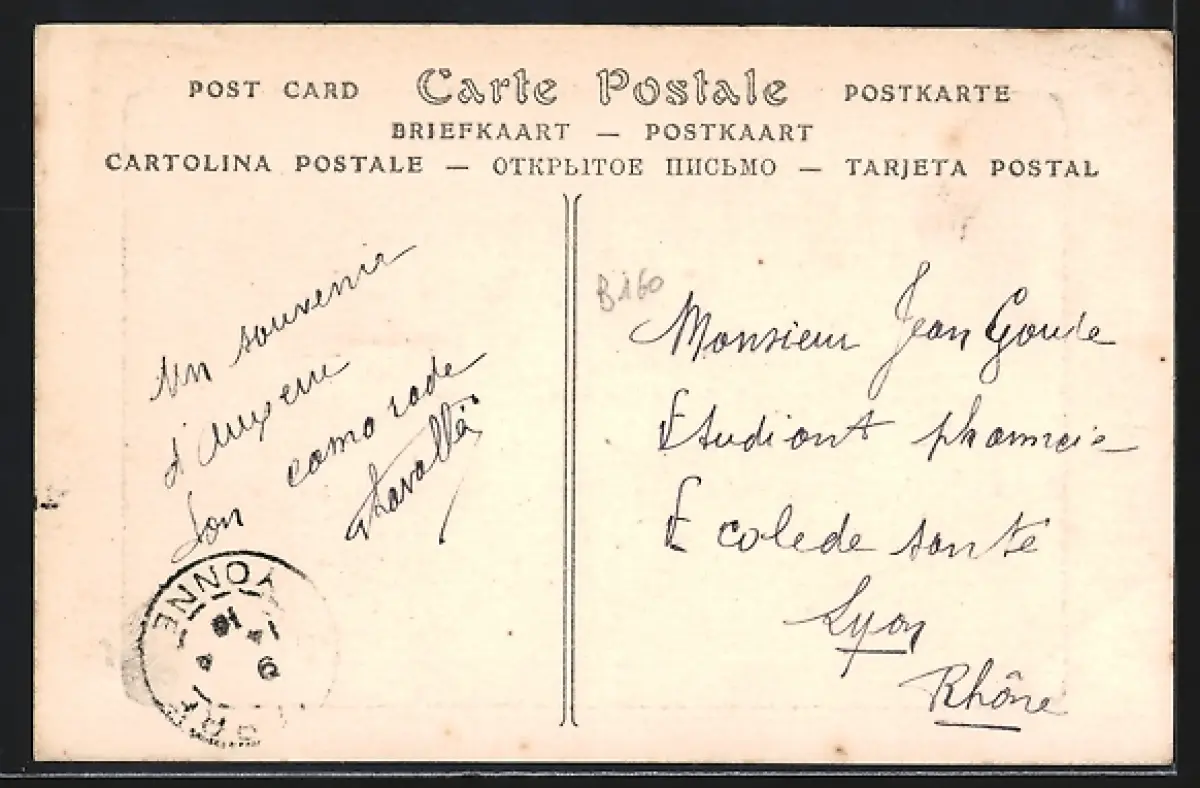 POST CARD Carte Postale POSTKARTE
BRIEFKAART — POSTKAART
CARTOLINA POSTALE — ОТКРЫТОЕ ПИСЬМО — TARJETA POSTAL
Un souvenir
d'Auxerre
Son camarade
B160
Monsieur Jean Goude
Etudiant pharmacie
Ecole de santé
Lyon
Rhône
YONNE